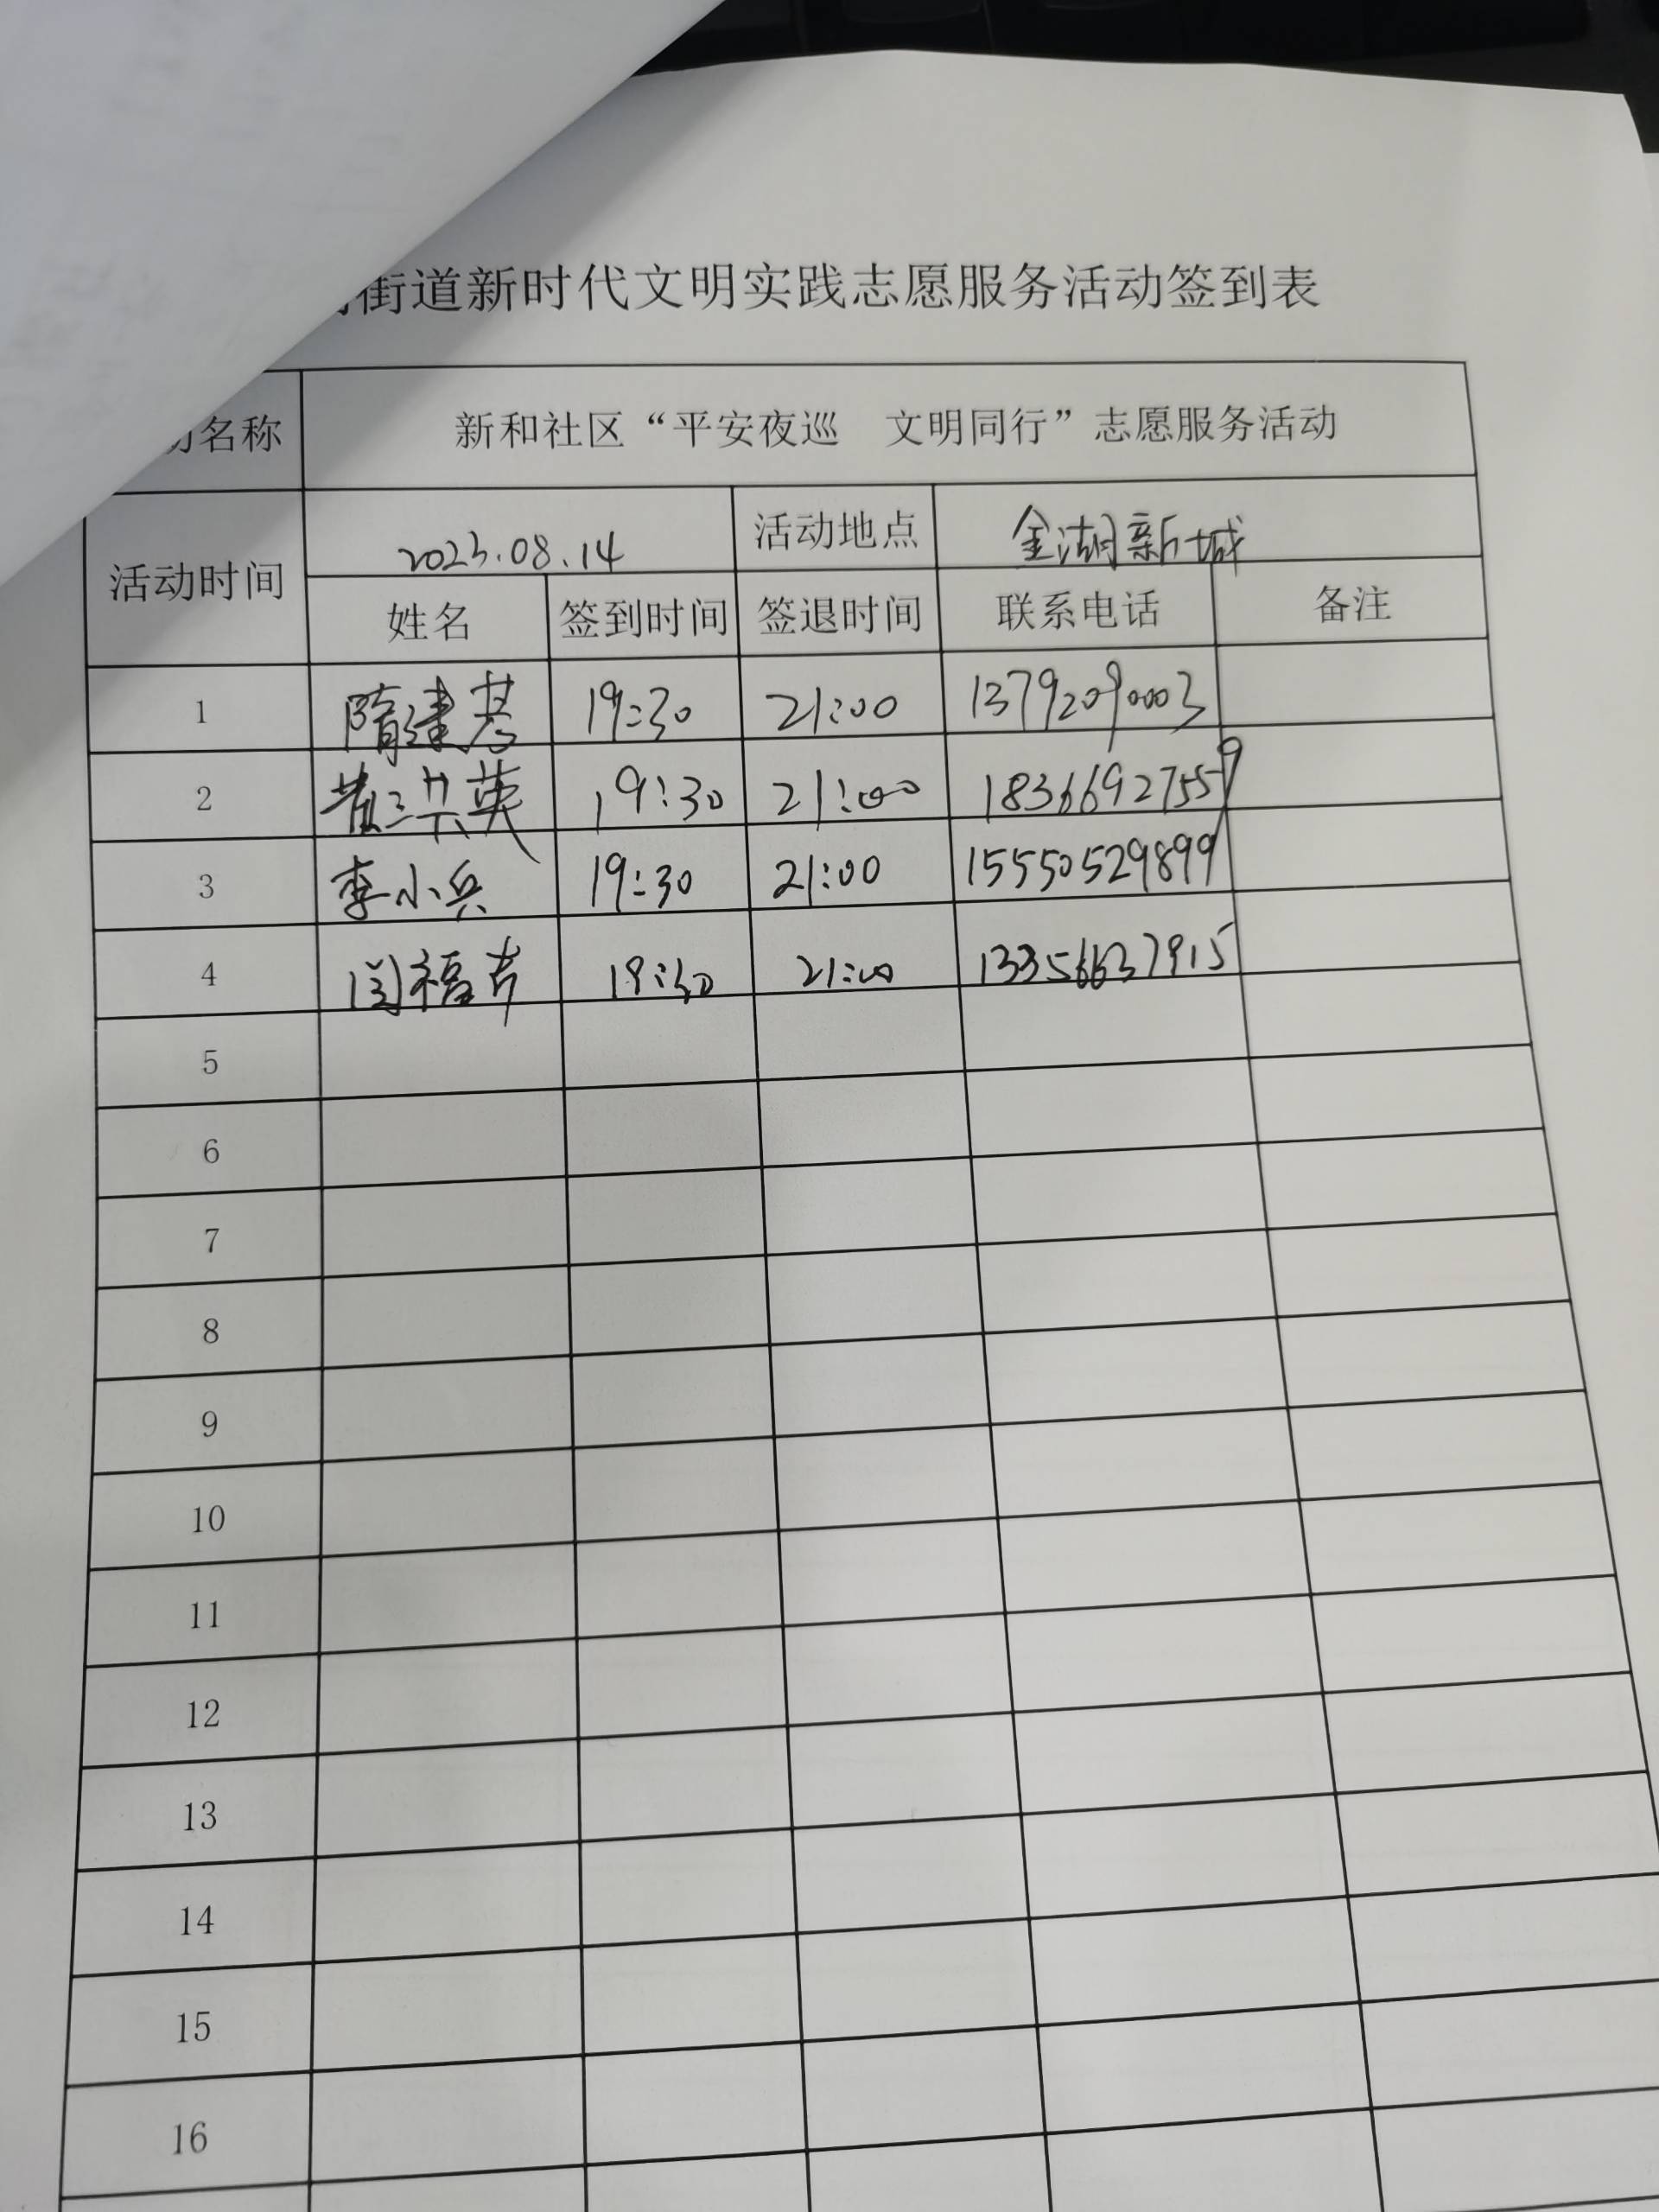 街道新时代文明实践志愿服务活动签到表
名称 新和社区“平安夜巡 文明同行”志愿服务活动
活动时间 2023.08.14 活动地点 金湖新城
姓名 签到时间 签退时间 联系电话 备注
1 隋建 19:30 21:00 13792090003
2 英 19:30 21:00 18366927559
3 李小兵 19:30 21:00 15550529899
4 闫福 19:30 21:00 13356637915
5
6
7
8
9
10
11
12
13
14
15
16